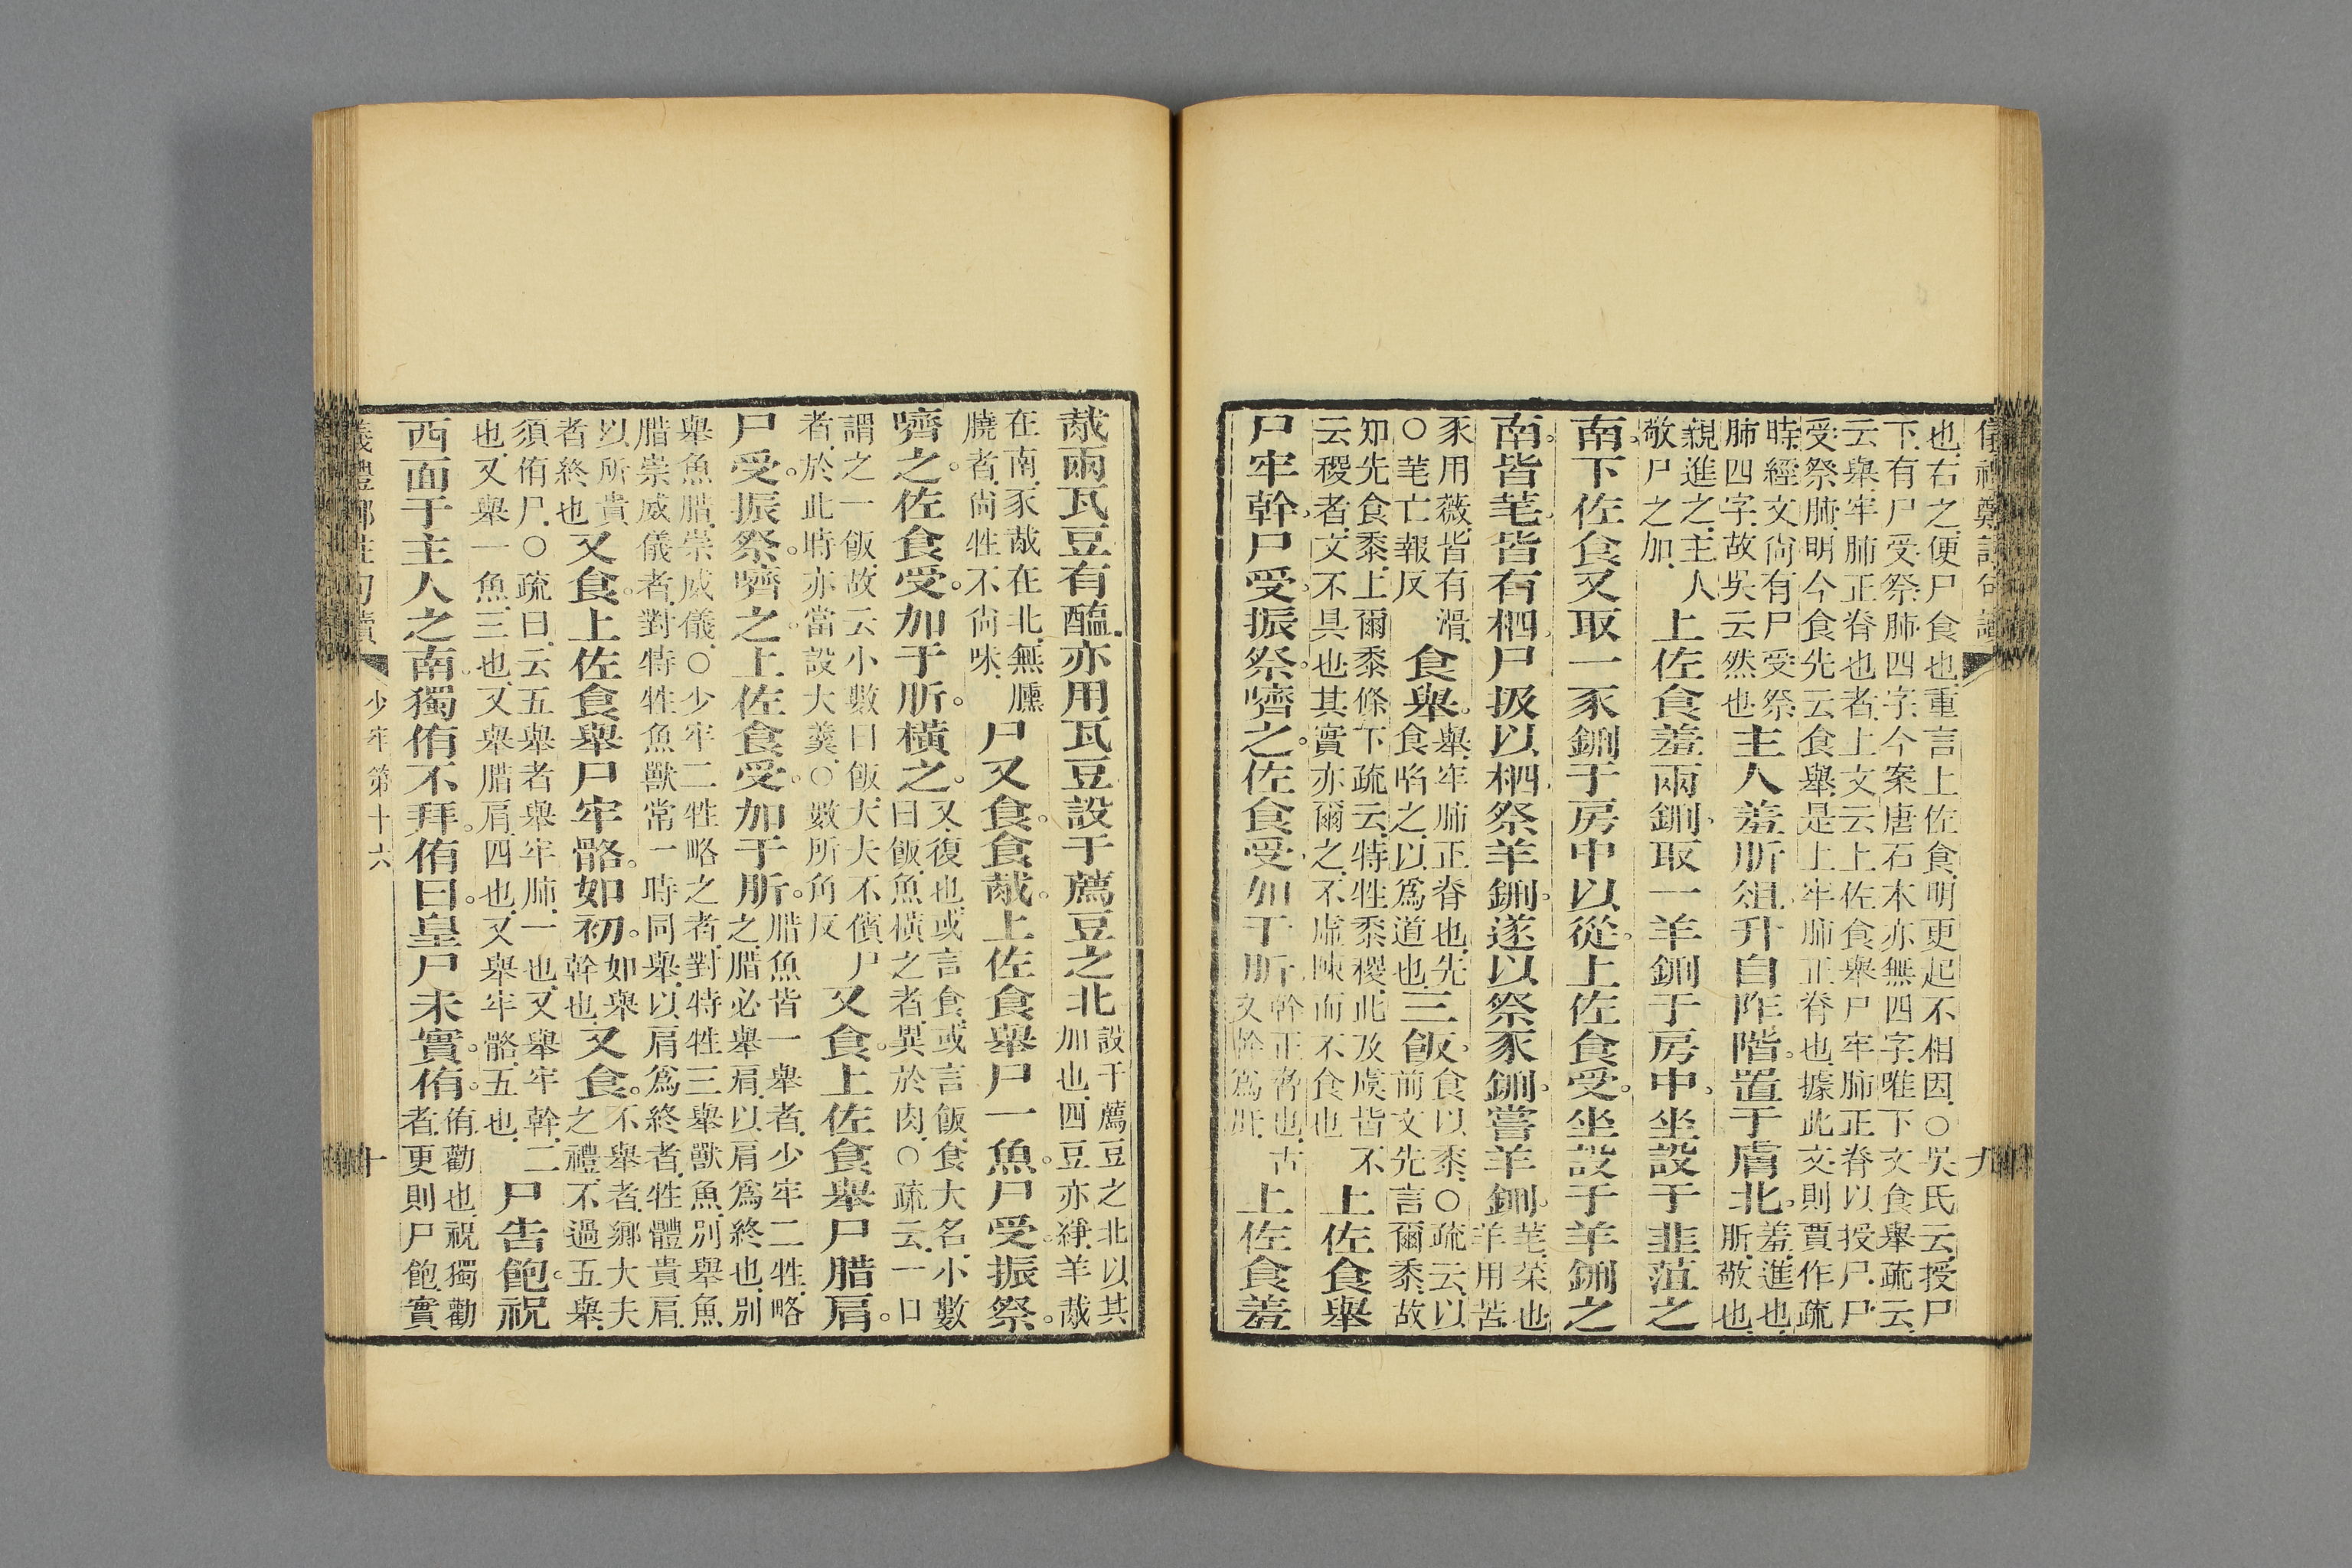 儀禮鄭註句讀
九
也右之便尸食也重言上佐食明更起不相因○吳氏云授尸
下有尸受祭肺四字今案唐石本亦無四字唯下文食舉疏云
云舉牢肺正脊也者上文云上佐食舉尸牢肺正脊以授尸尸
受祭肺明今食先云食舉是上牢肺正脊也據此文則賈作疏
時經文尚有尸受祭
肺四字故吳云然也
主人羞肵俎升自阼階置于膚北
羞進也
肵敬也
親進之主人
敬尸之加
上佐食羞兩鉶取一羊鉶于房中坐設于韭菹之
南下佐食又取一豕鉶于房中以從上佐食受坐設于羊鉶之
南皆芼皆有柶尸扱以柶祭羊鉶遂以祭豕鉶嘗羊鉶
芼菜也
羊用苦
豕用薇皆有滑
○芼亡報反
食舉
舉牢肺正脊也先
食啗之以爲道也
三飯
食以黍○疏云以
前文先言爾黍故
知先食黍上爾黍條下疏云特牲黍稷此及虞皆不
云稷者文不具也其實亦爾之不虛陳而不食也
上佐食舉
尸牢幹尸受振祭嚌之佐食受加于肵
幹正脅也古
文幹爲肝
上佐食羞
胾兩瓦豆有醢亦用瓦豆設于薦豆之北
設于薦豆之北以其
加也四豆亦綪羊胾
在南豕胾在北無臐
膮者尚牲不尚味
尸又食食胾上佐食舉尸一魚尸受振祭
嚌之佐食受加于肵橫之
又復也或言食或言飯食大名小數
曰飯魚橫之者異於肉○疏云一口
謂之一飯故云小數曰飯大夫不儐尸
者於此時亦當設大羹○數所角反
又食上佐食舉尸腊肩
尸受振祭嚌之上佐食受加于肵
腊魚皆一舉者少牢二牲略
之腊必舉肩以肩爲終也別
舉魚腊崇威儀○少牢二牲略之者對特牲三舉獸魚別舉魚
腊崇威儀者對特牲魚獸常一時同舉以肩爲終者牲體貴肩
以所貴
者終也
又食上佐食舉尸牢骼如初
如舉
幹也
又食
不舉者鄉大夫
之禮不過五舉
須侑尸○疏曰云五舉者舉牢肺一也又舉牢幹二
也又舉一魚三也又舉腊肩四也又舉牢骼五也
尸告飽祝
西面于主人之南獨侑不拜侑曰皇尸未實侑
侑勸也祝獨勸
者更則尸飽實
少牢第十六
十